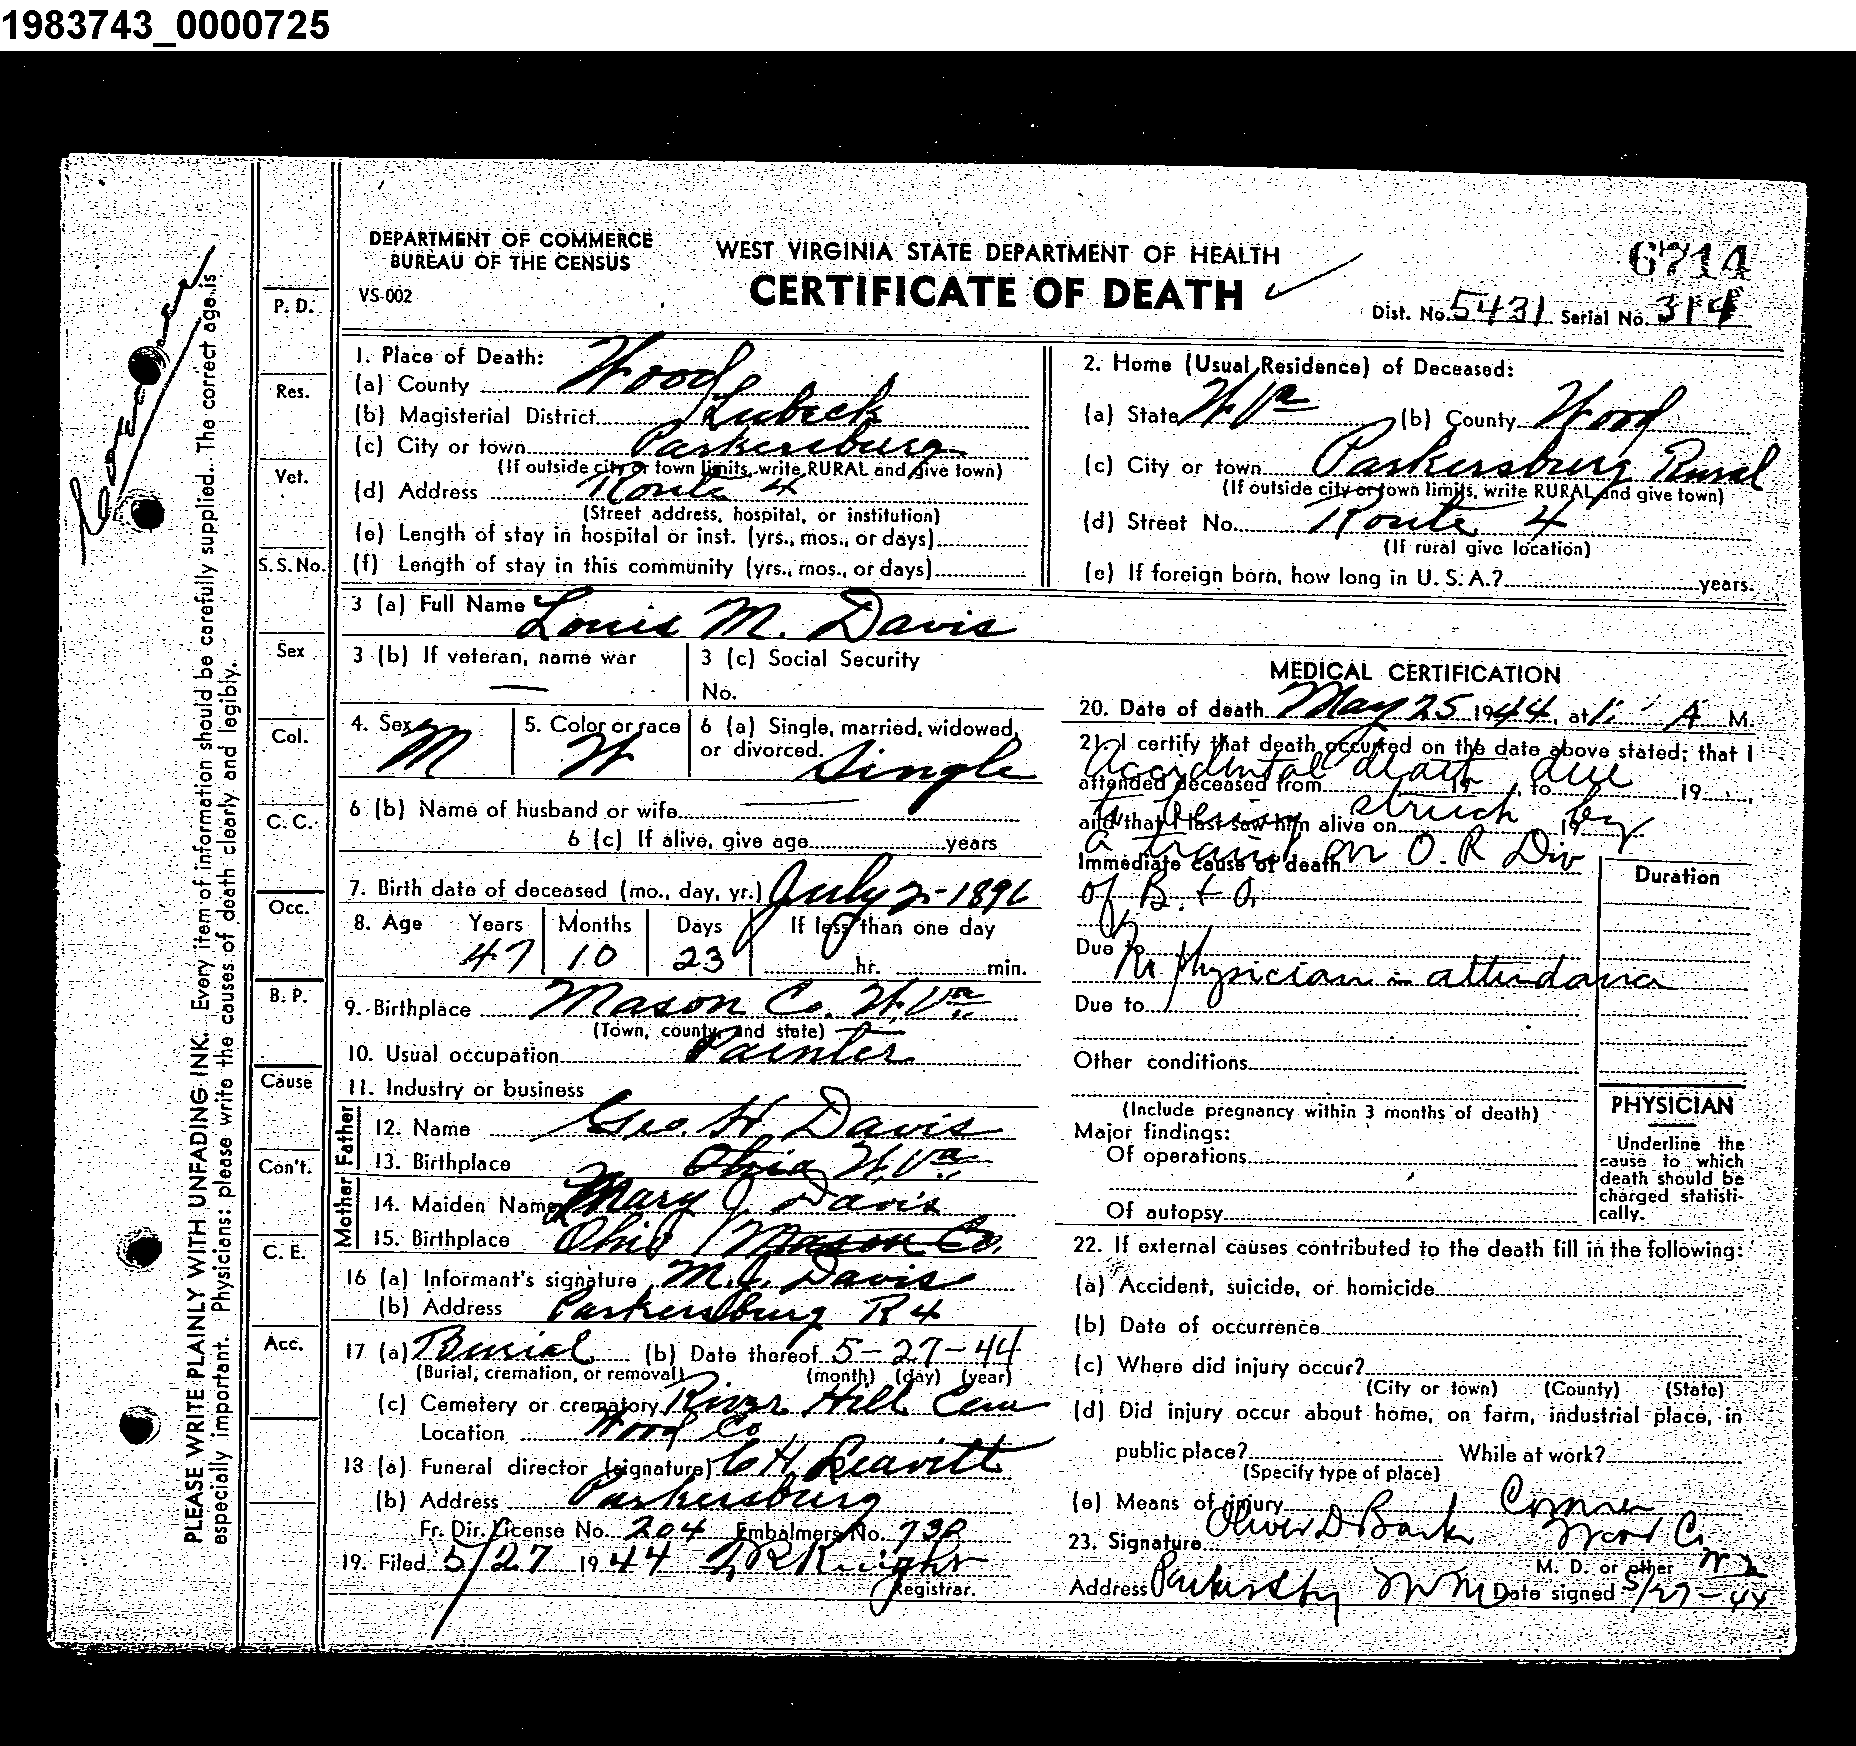 1983743_0000725
DEPARTMENT OF COMMERCE
BUREAU OF THE CENSUS
VS-002
WEST VIRGINIA STATE DEPARTMENT OF HEALTH
CERTIFICATE OF DEATH
6714
Dist. No. 5431 Serial No. 314
PLEASE WRITE PLAINLY WITH UNFADING INK. Every item of information should be carefully supplied. The correct age is
especially important. Physicians: please write the causes of death clearly and legibly.
P. D.
Res.
Vet.
S. S. No.
Sex
Col.
C. C.
Occ.
B. P.
Cause
Con't.
C. E.
Acc.
1. Place of Death:
(a) County Wood
(b) Magisterial District Lubeck
(c) City or town Parkersburg
(If outside city or town limits, write RURAL and give town)
(d) Address Route 4
(Street address, hospital, or institution)
(e) Length of stay in hospital or inst. (yrs., mos., or days)
(f) Length of stay in this community (yrs., mos., or days)
2. Home (Usual Residence) of Deceased:
(a) State W. Va (b) County Wood
(c) City or town Parkersburg Rural
(If outside city or town limits, write RURAL and give town)
(d) Street No. Route 4
(If rural give location)
(e) If foreign born, how long in U. S. A.? years.
3 (a) Full Name Louis M. Davis
3 (b) If veteran, name war —
3 (c) Social Security
No.
4. Sex M
5. Color or race W
6 (a) Single, married, widowed,
or divorced. Single
6 (b) Name of husband or wife
6 (c) If alive, give age years
7. Birth date of deceased (mo., day, yr.) July 2-1896
8. Age Years Months Days If less than one day
47 10 23 hr. min.
9. Birthplace Mason Co. W. Va.
(Town, county, and state)
10. Usual occupation Painter
11. Industry or business
Father
12. Name Geo. H. Davis
13. Birthplace Ohio W. Va.
Mother
14. Maiden Name Mary J Davis
15. Birthplace Ohio Mason Co.
16 (a) Informant's signature M. J. Davis
(b) Address Parkersburg R 4
17 (a) Burial (b) Date thereof 5-27-44
(Burial, cremation, or removal) (month) (day) (year)
(c) Cemetery or crematory River Hill Cem
Location Wood Co
18 (a) Funeral director (signature) C H Leavitt
(b) Address Parkersburg
Fr. Dir. License No. 204 Embalmers No. 730
19. Filed 5/27 1944 Knight
Registrar.
MEDICAL CERTIFICATION
20. Date of death May 25 1944, at 1: A M.
21. I certify that death occurred on the date above stated; that I
Accidental death due
attended deceased from 19 , to 19 ,
to being struck by
and that I last saw him alive on 19
a train on O. R Div
Immediate cause of death
of B. & O.
Duration
Due to
No physician in attendance
Due to
Other conditions
(Include pregnancy within 3 months of death)
Major findings:
Of operations
Of autopsy
PHYSICIAN
Underline the
cause to which
death should be
charged statisti-
cally.
22. If external causes contributed to the death fill in the following:
(a) Accident, suicide, or homicide
(b) Date of occurrence
(c) Where did injury occur?
(City or town) (County) (State)
(d) Did injury occur about home, on farm, industrial place, in
public place? While at work?
(Specify type of place)
(e) Means of injury Coroner
23. Signature Oliver D Barker Wood Co
M. D. or other
Address Date signed 5/27-44